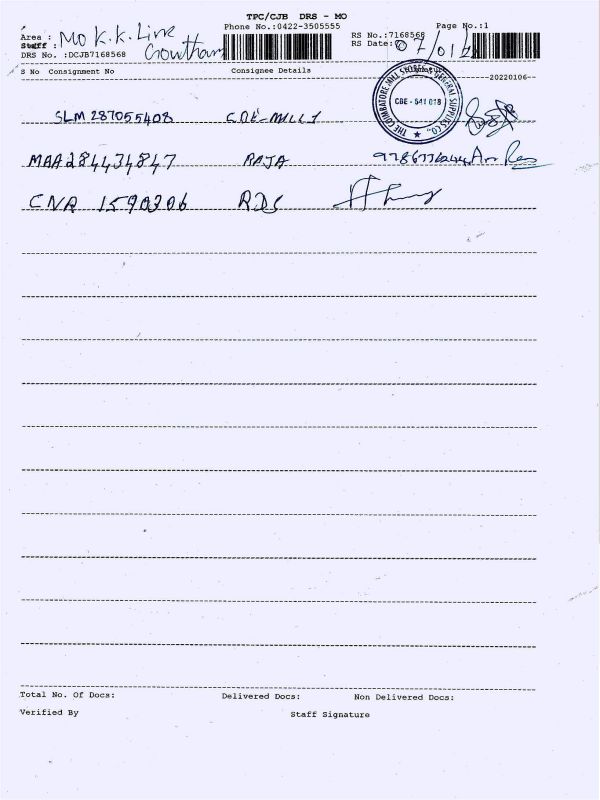 TPC/CJB DRS - MO
Phone No.:0422-3505555
Page No.:1
Area : MO K.K. Link
Staff : Gowtham
RS No.:7168568
RS Date: 07/01/
DRS No. :DCJB7168568
S No Consignment No Consignee Details
20220106
THE COIMBATORE MILL STORES & GENERAL SUPPLIES CO.,
CBE - 641 018
SLM 287055408 COE-MILLS
MAA284434847 RAJA
CNA 1590306 RDS
Total No. Of Docs: Delivered Docs: Non Delivered Docs:
Verified By Staff Signature